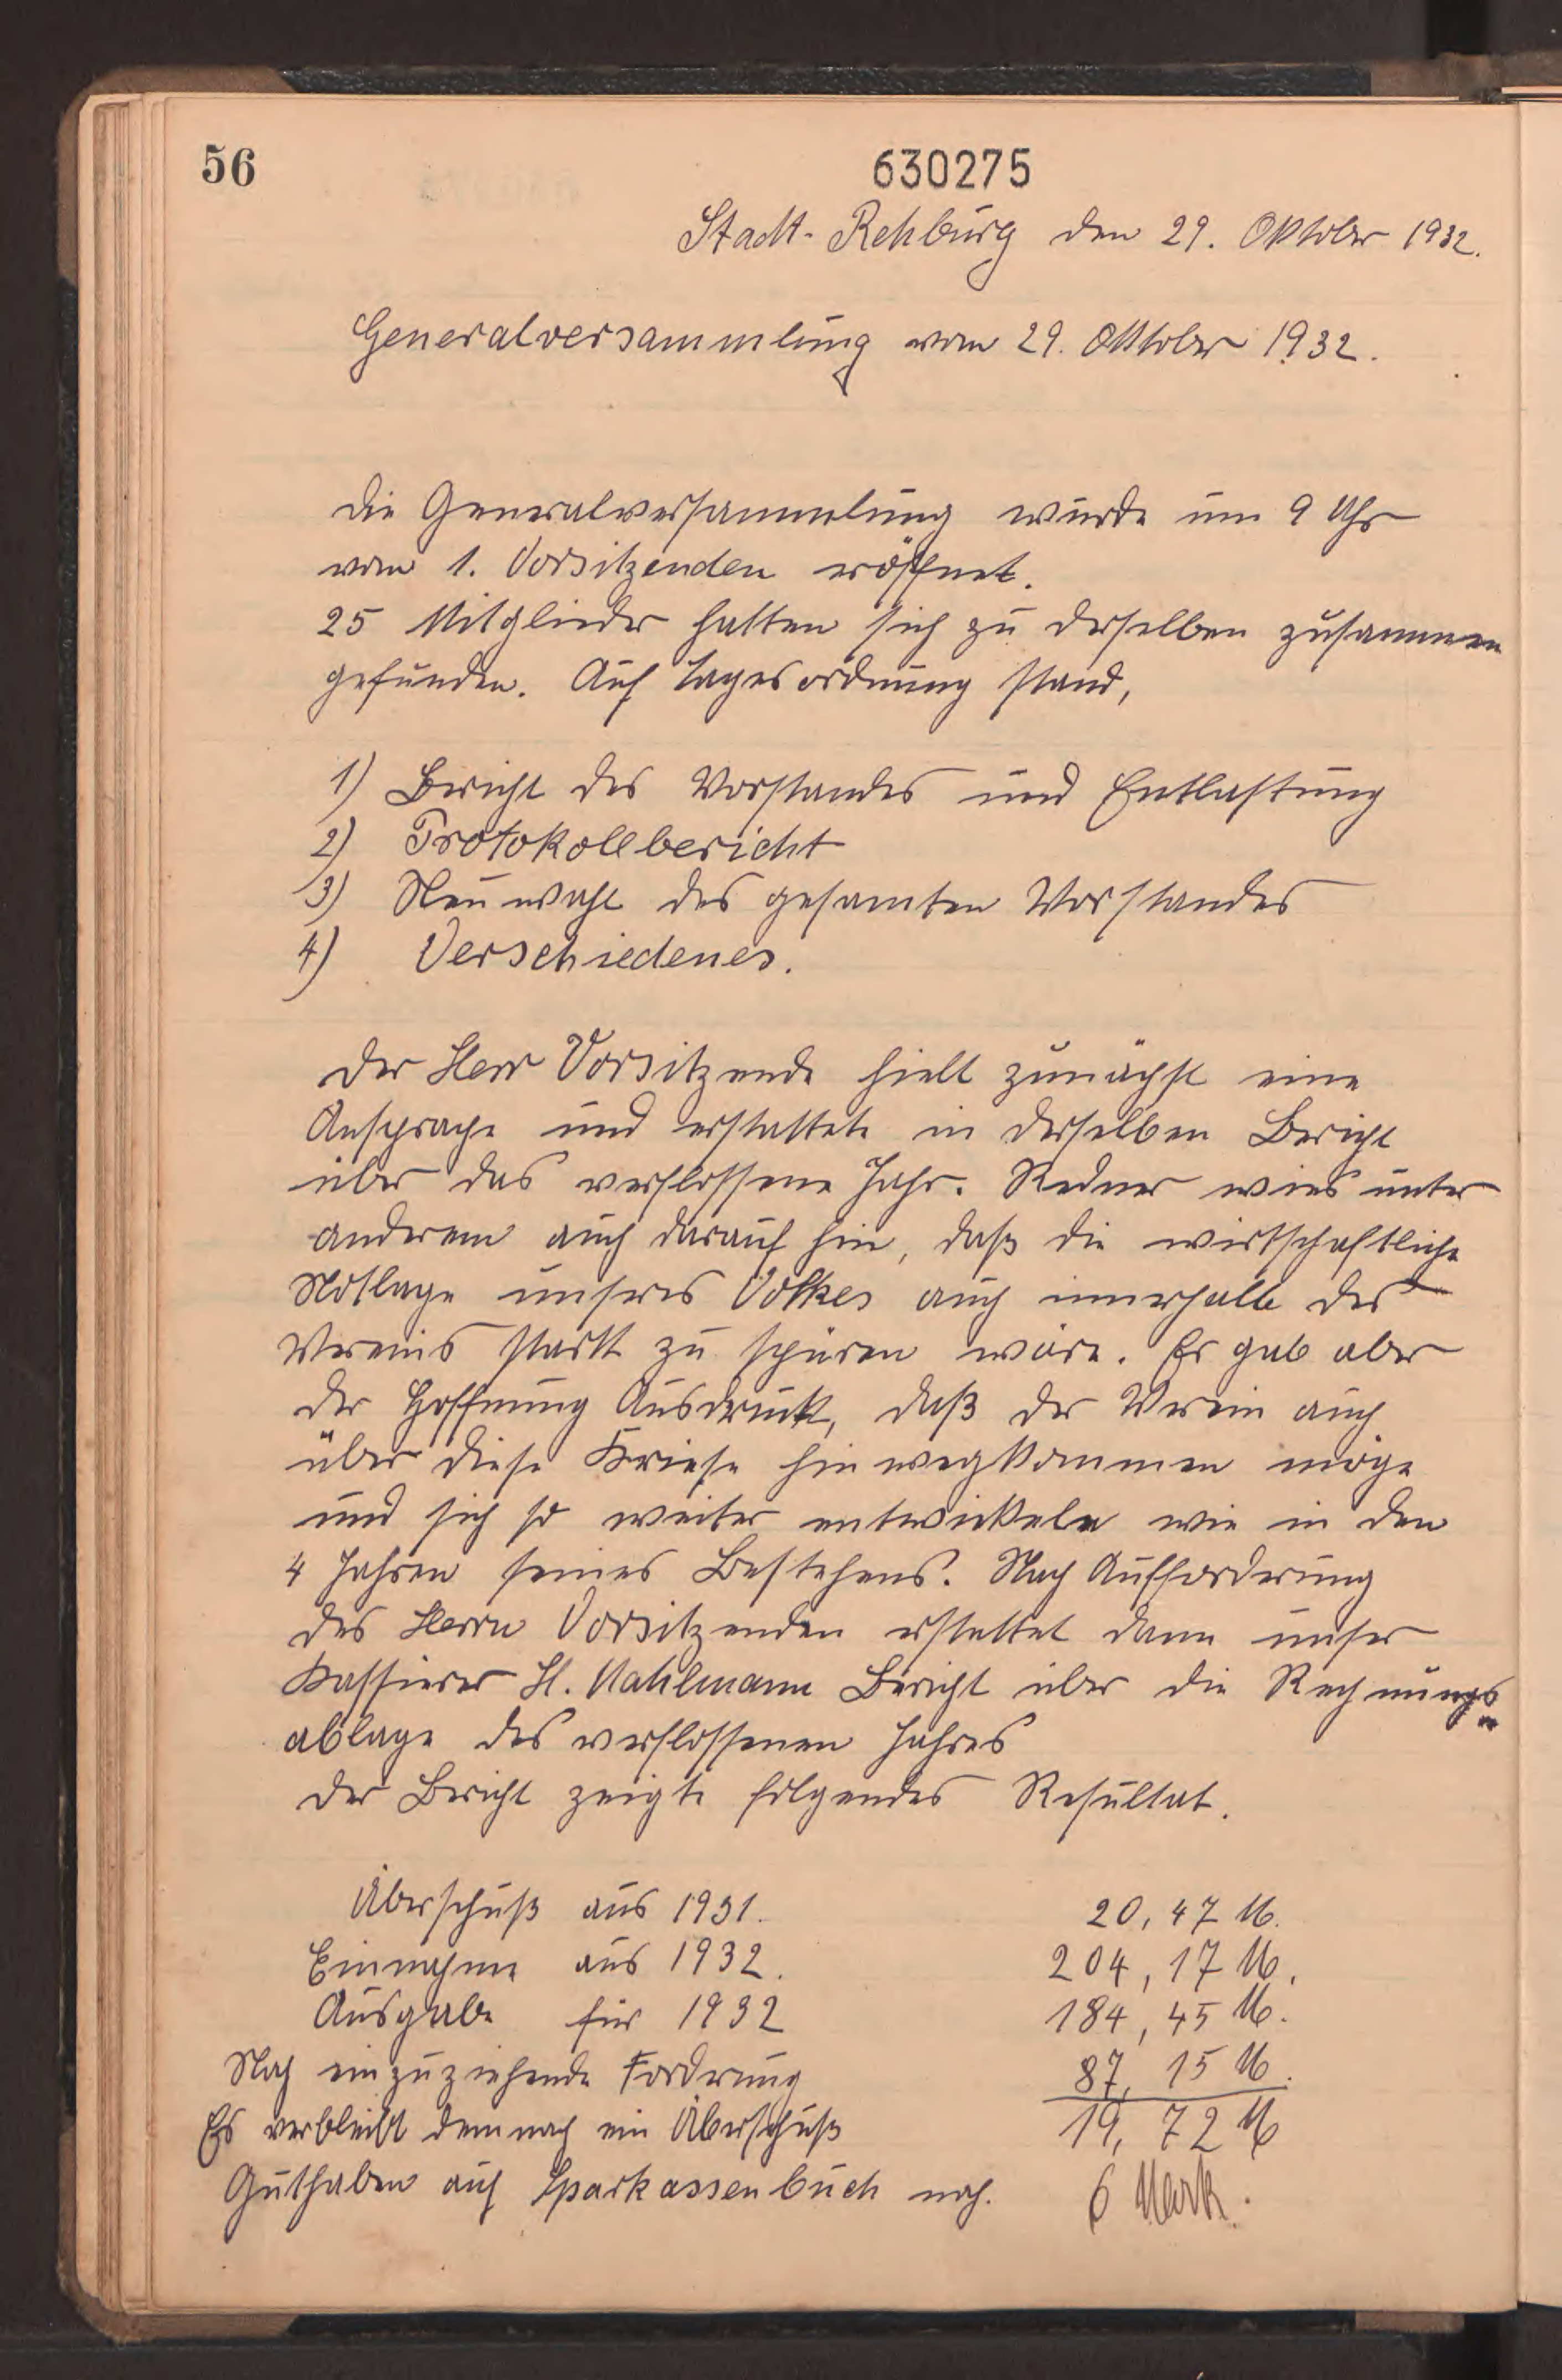 56
630275
Stadt-Rehburg den 29. Oktober 1932.
Generalversammlung vom 29. Oktober 1932.
Die Generalversammlung wurde um 9 Uhr
vom 1. Vorsitzenden eröffnet.
25 Mitglieder hatten sich zu derselben zusammen
gefunden. Auf Tagesordnung stand,
1) Bericht des Vorstandes und Entlastung
2) Protokollbericht
3) Neuwahl des gesamten Vorstandes
4) Verschiedenes.
Der Herr Vorsitzende hielt zunächst eine
Ansprache und erstattete in derselben Bericht
über das verflossene Jahr. Redner wies unter
anderem auch darauf hin, daß die wirtschaftliche
Notlage unseres Volkes auch innerhalb des
Vereins stark zu spüren wäre. Er gab aber
der Hoffnung Ausdruck, daß der Verein auch
über diese Kriese hinwegkommen möge
und sich so weiter entwickeln wie in den
4 Jahren seines Bestehens. Nach Aufforderung
des Herrn Vorsitzenden erstattet dann unser
Kassierer H. Mahlmann Bericht über die Rechnungs
ablage des verflossenen Jahres
Der Bericht zeigte folgendes Resultat.
Überschuß aus 1931. 20,47 M.
Einnahme aus 1932. 204,17 M.
Ausgabe für 1932 184,45 M.
Noch einzuziehende Forderung 87,15 M.
Es verbleibt demnach ein Überschuß 19,72 M
Guthaben auf Sparkassenbuch noch. 6 Mark.